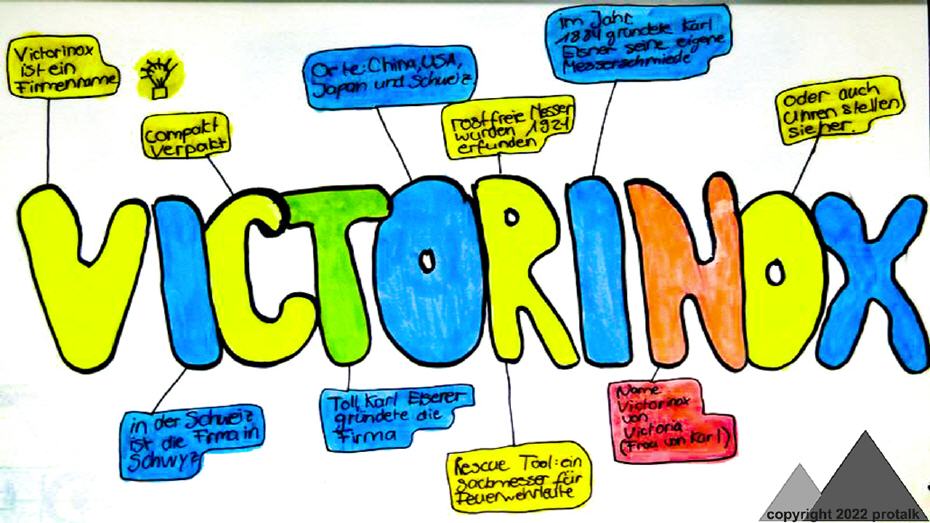 Victorinox
ist ein
Firmenname
compakt
verpakt
Orte: China, USA,
Japan und Schweiz
rostfreie Messer
wurden 1921
erfunden
im Jahr
1884 gründete Karl
Elsner seine eigene
Messerschmiede
oder auch
Uhren stellen
sie her.
VICTORINOX
in der Schweiz
ist die Firma in
Schwyz
Toll, Karl Elserer
gründete die
Firma
Rescue Tool: ein
Sackmesser für
Feuerwehrleute
Name
Victorinox
von
Victoria
(Frau von Karl)
copyright 2022 protalk